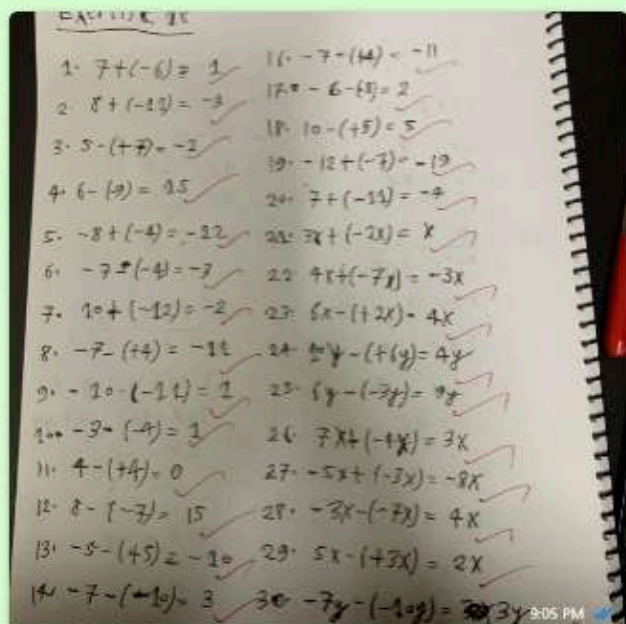 1. 7+(-6)= 1
2. 8+(-11)= -3
3. 5-(+7)= -2
4. 6-(-9)= 15
5. -8+(-4)= -12
6. -7-(-4)= -3
7. 10+(-12)= -2
8. -7-(+4)= -11
9. -10-(-11)= 1
10. -3-(-4)= 1
11. 4-(+4)= 0
12. 8-(-7)= 15
13. -5-(+5)= -10
14. -7-(-10)= 3
16. -7-(+4)= -11
17. -6-(-8)= 2
18. 10-(+5)= 5
19. -12+(-7)= -19
20. 7+(-11)= -4
21. 3x+(-2x)= x
22. 4x+(-7x)= -3x
23. 6x-(+2x)= 4x
24. -(+6y)= 4y
25. 6y-(-3y)= 9y
26. 7x+(-4x)= 3x
27. -5x+(-3x)= -8x
28. -3x-(-7x)= 4x
29. 5x-(+3x)= 2x
30 -7y-(-10y)= 3y
9:05 PM